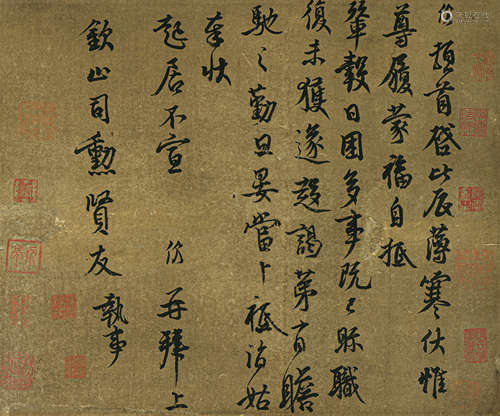 仿頓首啓比辰薄寒伏惟
尊履蒙福自抵
輦轂日困多事既已赊職
復未獲遂趨謁第有瞻
馳之勤旦晏當卜祗詣姑
奉狀
起居不宣 仿再拜上
欽止司勳賢友執事